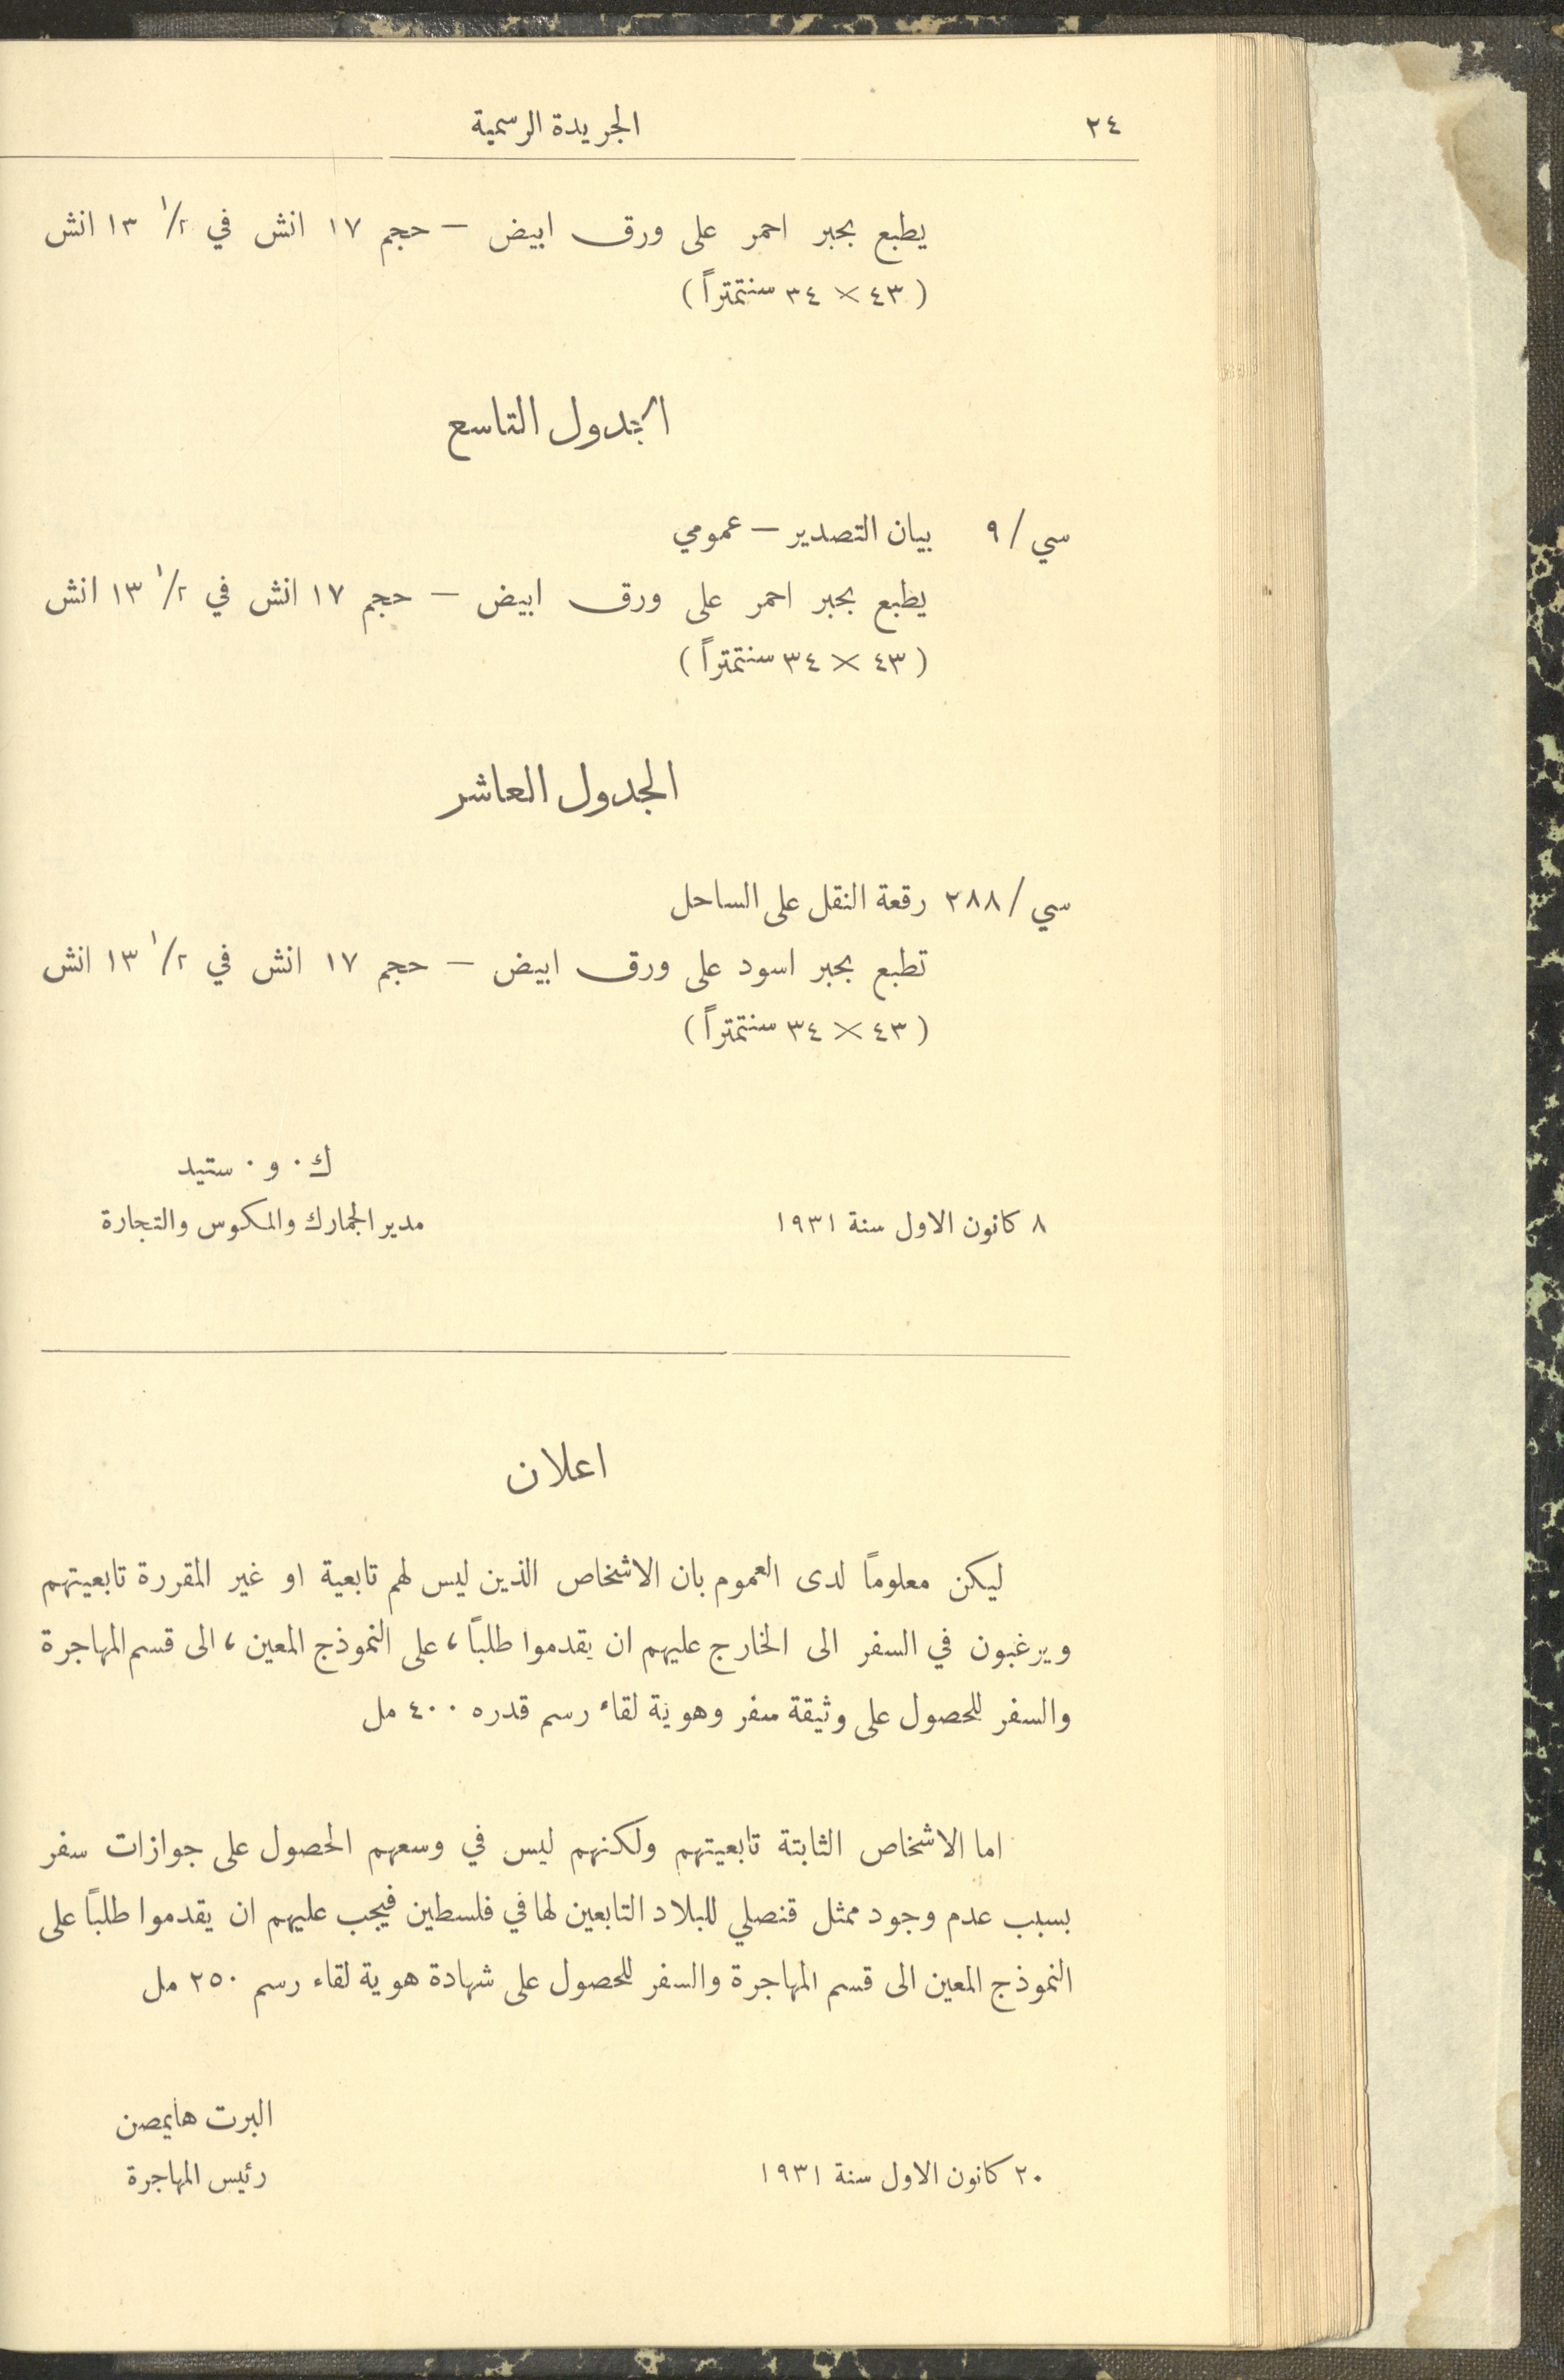 ٢٤
الجريدة الرسمية
يطبع بحبر احمر على ورق ابيض — حجم ١٧ انش في ١/٢ ١٣ انش
(٤٣ × ٣٤ سنتمتراً)
الجدول التاسع
سي / ٩ بيان التصدير — عمومي
يطبع بحبر احمر على ورق ابيض — حجم ١٧ انش في ١/٢ ١٣ انش
(٤٣ × ٣٤ سنتمتراً)
الجدول العاشر
سي / ٢٨٨ رقعة النقل على الساحل
تطبع بحبر اسود على ورق ابيض — حجم ١٧ انش في ١/٢ ١٣ انش
(٤٣ × ٣٤ سنتمتراً)
ك . و . ستيد
٨ كانون الاول سنة ١٩٣١ مدير الجمارك والمكوس والتجارة
اعلان
ليكن معلوماً لدى العموم بان الاشخاص الذين ليس لهم تابعية او غير المقررة تابعيتهم
ويرغبون في السفر الى الخارج عليهم ان يقدموا طلباً، على النموذج المعين، الى قسم المهاجرة
والسفر للحصول على وثيقة سفر وهوية لقاء رسم قدره ٤٠٠ مل
اما الاشخاص الثابتة تابعيتهم ولكنهم ليس في وسعهم الحصول على جوازات سفر
بسبب عدم وجود ممثل قنصلي للبلاد التابعين لها في فلسطين فيجب عليهم ان يقدموا طلباً على
النموذج المعين الى قسم المهاجرة والسفر للحصول على شهادة هوية لقاء رسم ٢٥٠ مل
البرت هايمصن
٢٠ كانون الاول سنة ١٩٣١ رئيس المهاجرة